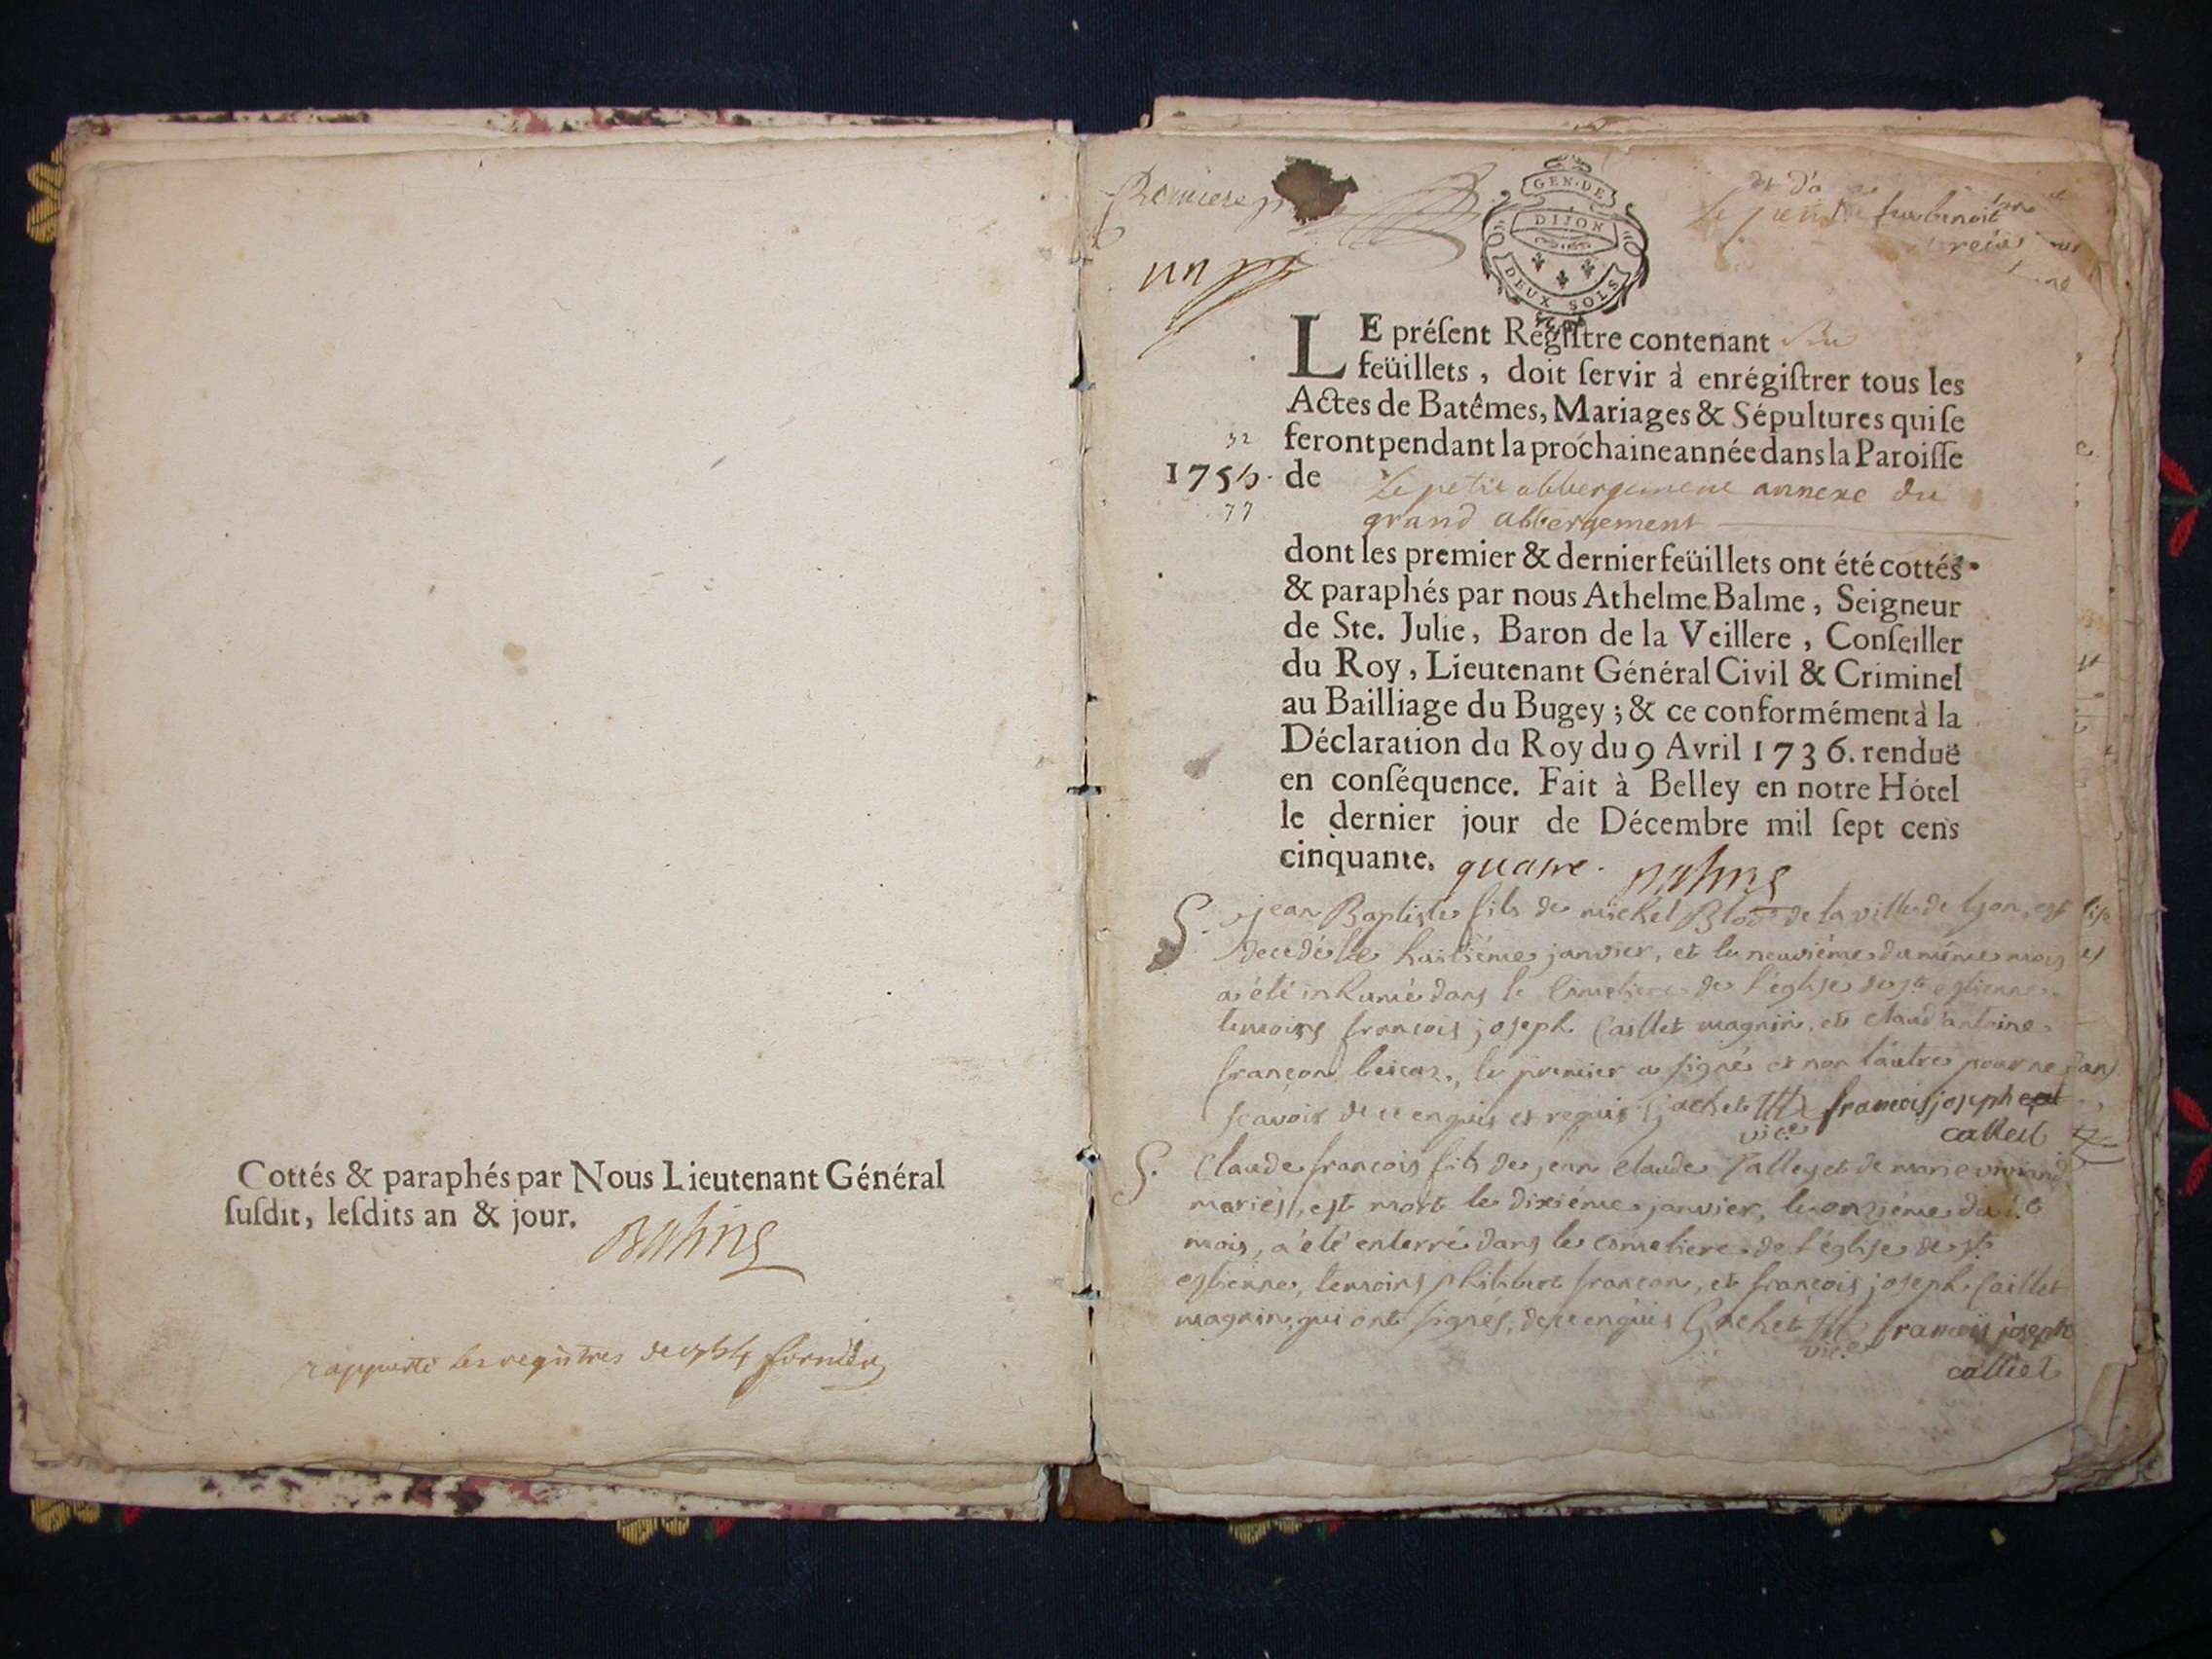 Cottés & paraphés par Nous Lieutenant Général
ſuſdit, leſdits an & jour.
Balme
rapporté les registres de 1754
un
GEN·DE
DIJON
DEUX SOLS
benoit
LE préſent Régiſtre contenant
feüillets, doit ſervir à enrégiſtrer tous les
Actes de Batêmes, Mariages & Sépultures qui ſe
feront pendant la prochaine année dans la Paroiſſe
1755. de Le petit abbergement annexe du
grand abbergement
dont les premier & dernier feüillets ont été cottés
& paraphés par nous Athelme Balme, Seigneur
de Ste. Julie, Baron de la Veillere, Conſeiller
du Roy, Lieutenant Général Civil & Criminel
au Bailliage du Bugey; & ce conformément à la
Déclaration du Roy du 9 Avril 1736. renduë
en conſéquence. Fait à Belley en notre Hôtel
le dernier jour de Décembre mil ſept cens
cinquante. quatre. Balme
S. jean Baptiste fils de michel de la ville de lyon, est
decedé le huitiéme janvier, et le neuviéme du même mois
a été inhumé dans le cimetiere de l'église de st estienne.
temoins françois joseph Caillet magnin, et claud'antoine
françon, le premier a signé et non l'autre pour ne
scavoir de ce enquis et requis Gachet francois joseph
vice callet
S. Claude francois fils de jean claude Calley et de marie
mariés, est mort le dixiéme janvier, le onziéme dudt
mois, a été enterré dans le cimetiere de l'église de st
estienne, temoins philibert françon, et françois joseph Caillet
magnin, qui ont signés, de ce enquis Gachet francois joseph
vice calliet